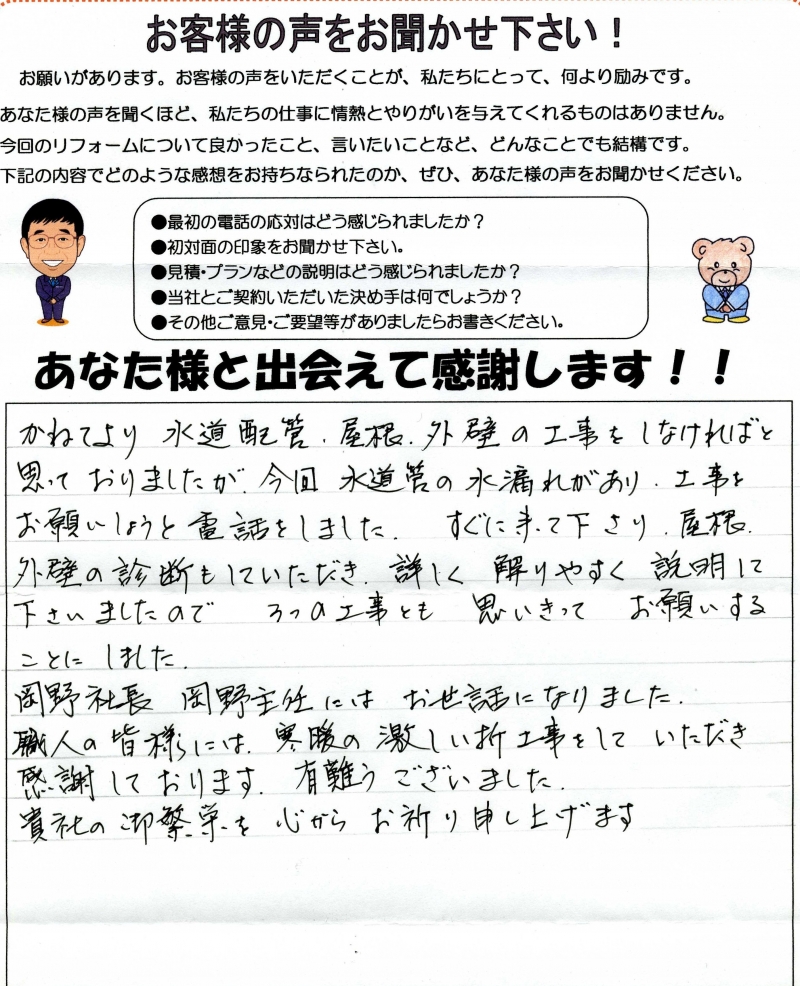 お客様の声をお聞かせ下さい！
お願いがあります。お客様の声をいただくことが、私たちにとって、何より励みです。
あなた様の声を聞くほど、私たちの仕事に情熱とやりがいを与えてくれるものはありません。
今回のリフォームについて良かったこと、言いたいことなど、どんなことでも結構です。
下記の内容でどのような感想をお持ちなられたのか、ぜひ、あなた様の声をお聞かせください。
●最初の電話の応対はどう感じられましたか？
●初対面の印象をお聞かせ下さい。
●見積・プランなどの説明はどう感じられましたか？
●当社とご契約いただいた決め手は何でしょうか？
●その他ご意見・ご要望等がありましたらお書きください。
あなた様と出会えて感謝します！！
かねてより 水道配管、屋根、外壁の工事をしなければと
思っておりましたが、今回 水道管の水漏れがあり、工事を
お願いしようと電話をしました。 すぐに来て下さり、屋根、
外壁の診断もしていただき、詳しく 解りやすく 説明して
下さいましたので 3つの工事とも 思いきって お願いする
ことにしました。
岡野社長 岡野主任には お世話になりました。
職人の皆様らには、寒暖の激しい折工事をして いただき
感謝しております。有難うございました。
貴社の御繁栄を 心から お祈り申し上げます